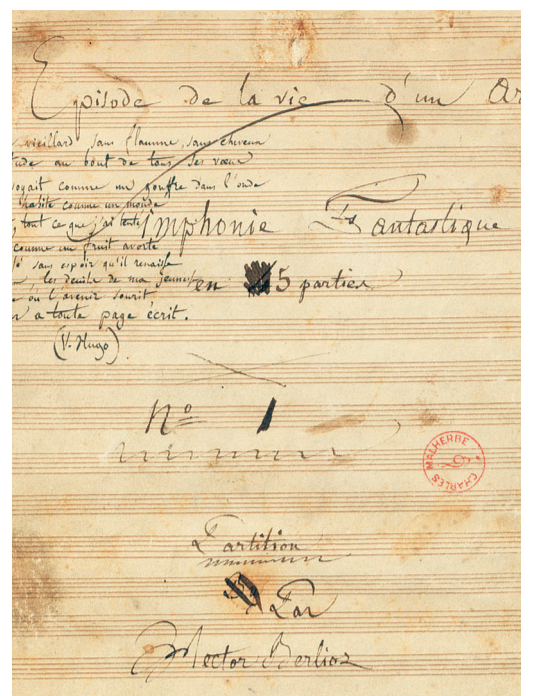 Episode de la vie d'un Ar
vieillard, sans flamme, sans cheveux
tude au bout de tous ses vœux
oyait comme un gouffre dans l'onde
habite comme un monde
tout ce que j'ai tenté
comme un fruit avorté
sans espoir qu'il renaisse
les deuils de ma jeunesse
où l'avenir sourit,
a toute page écrit.
(V. Hugo)
imphonie Fantastique
en 5 parties
No 1
CHARLES MALHERBE
Partition
Par
Hector Berlioz